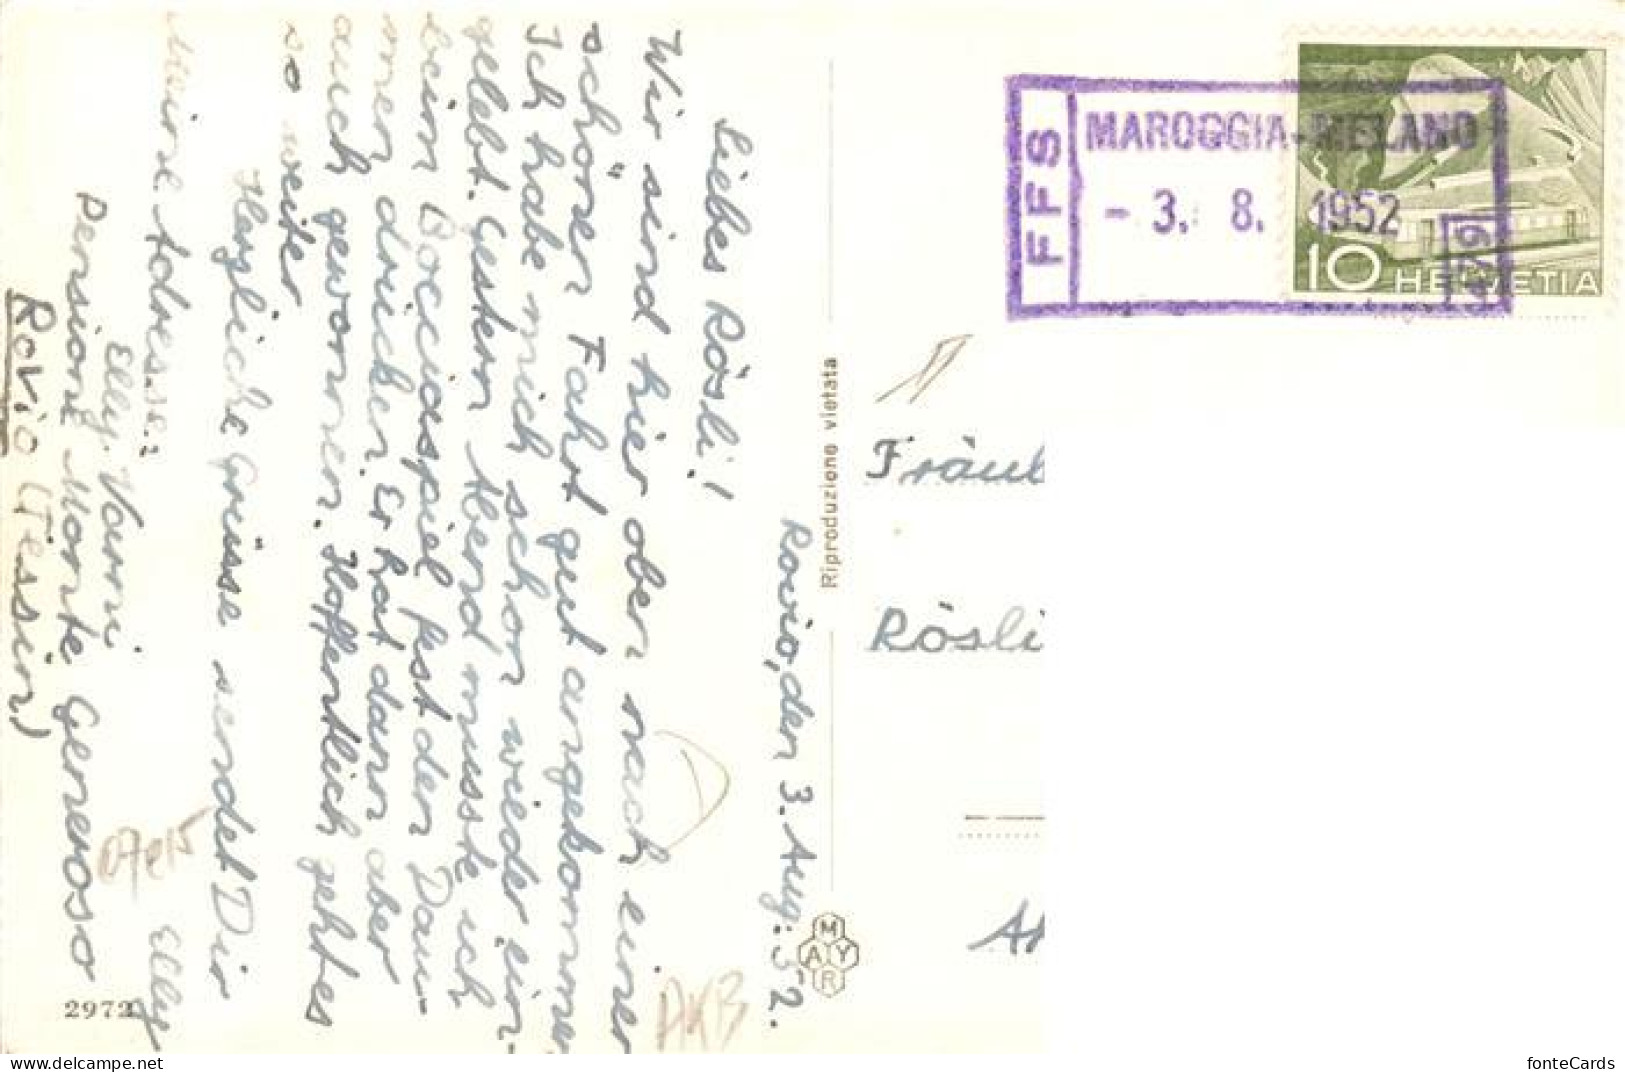 Rovio, den 3. Aug. 52.
Liebes Rösli!
Wir sind hier oben nach einer
schönen Fahrt gut angekommen
Ich habe mich schon wieder ein-
gelebt. Gestern Abend musste ich
beim Bocciaspiel fest den Dau-
men drücken. Er hat dann aber
auch gewonnen. Hoffentlich gehts
so weiter
Herzliche Grüsse sendet Dir
Elly
Meine Adresse:
Elly
Pensione Monte Generoso
Rovio (Tessin)
2972
Riproduzione vietata
MAYR
FFS
MAROGGIA-MELANO
- 3. 8. 1952
479
10 HELVETIA
Fräul
Rösli
AKB
fonteCards